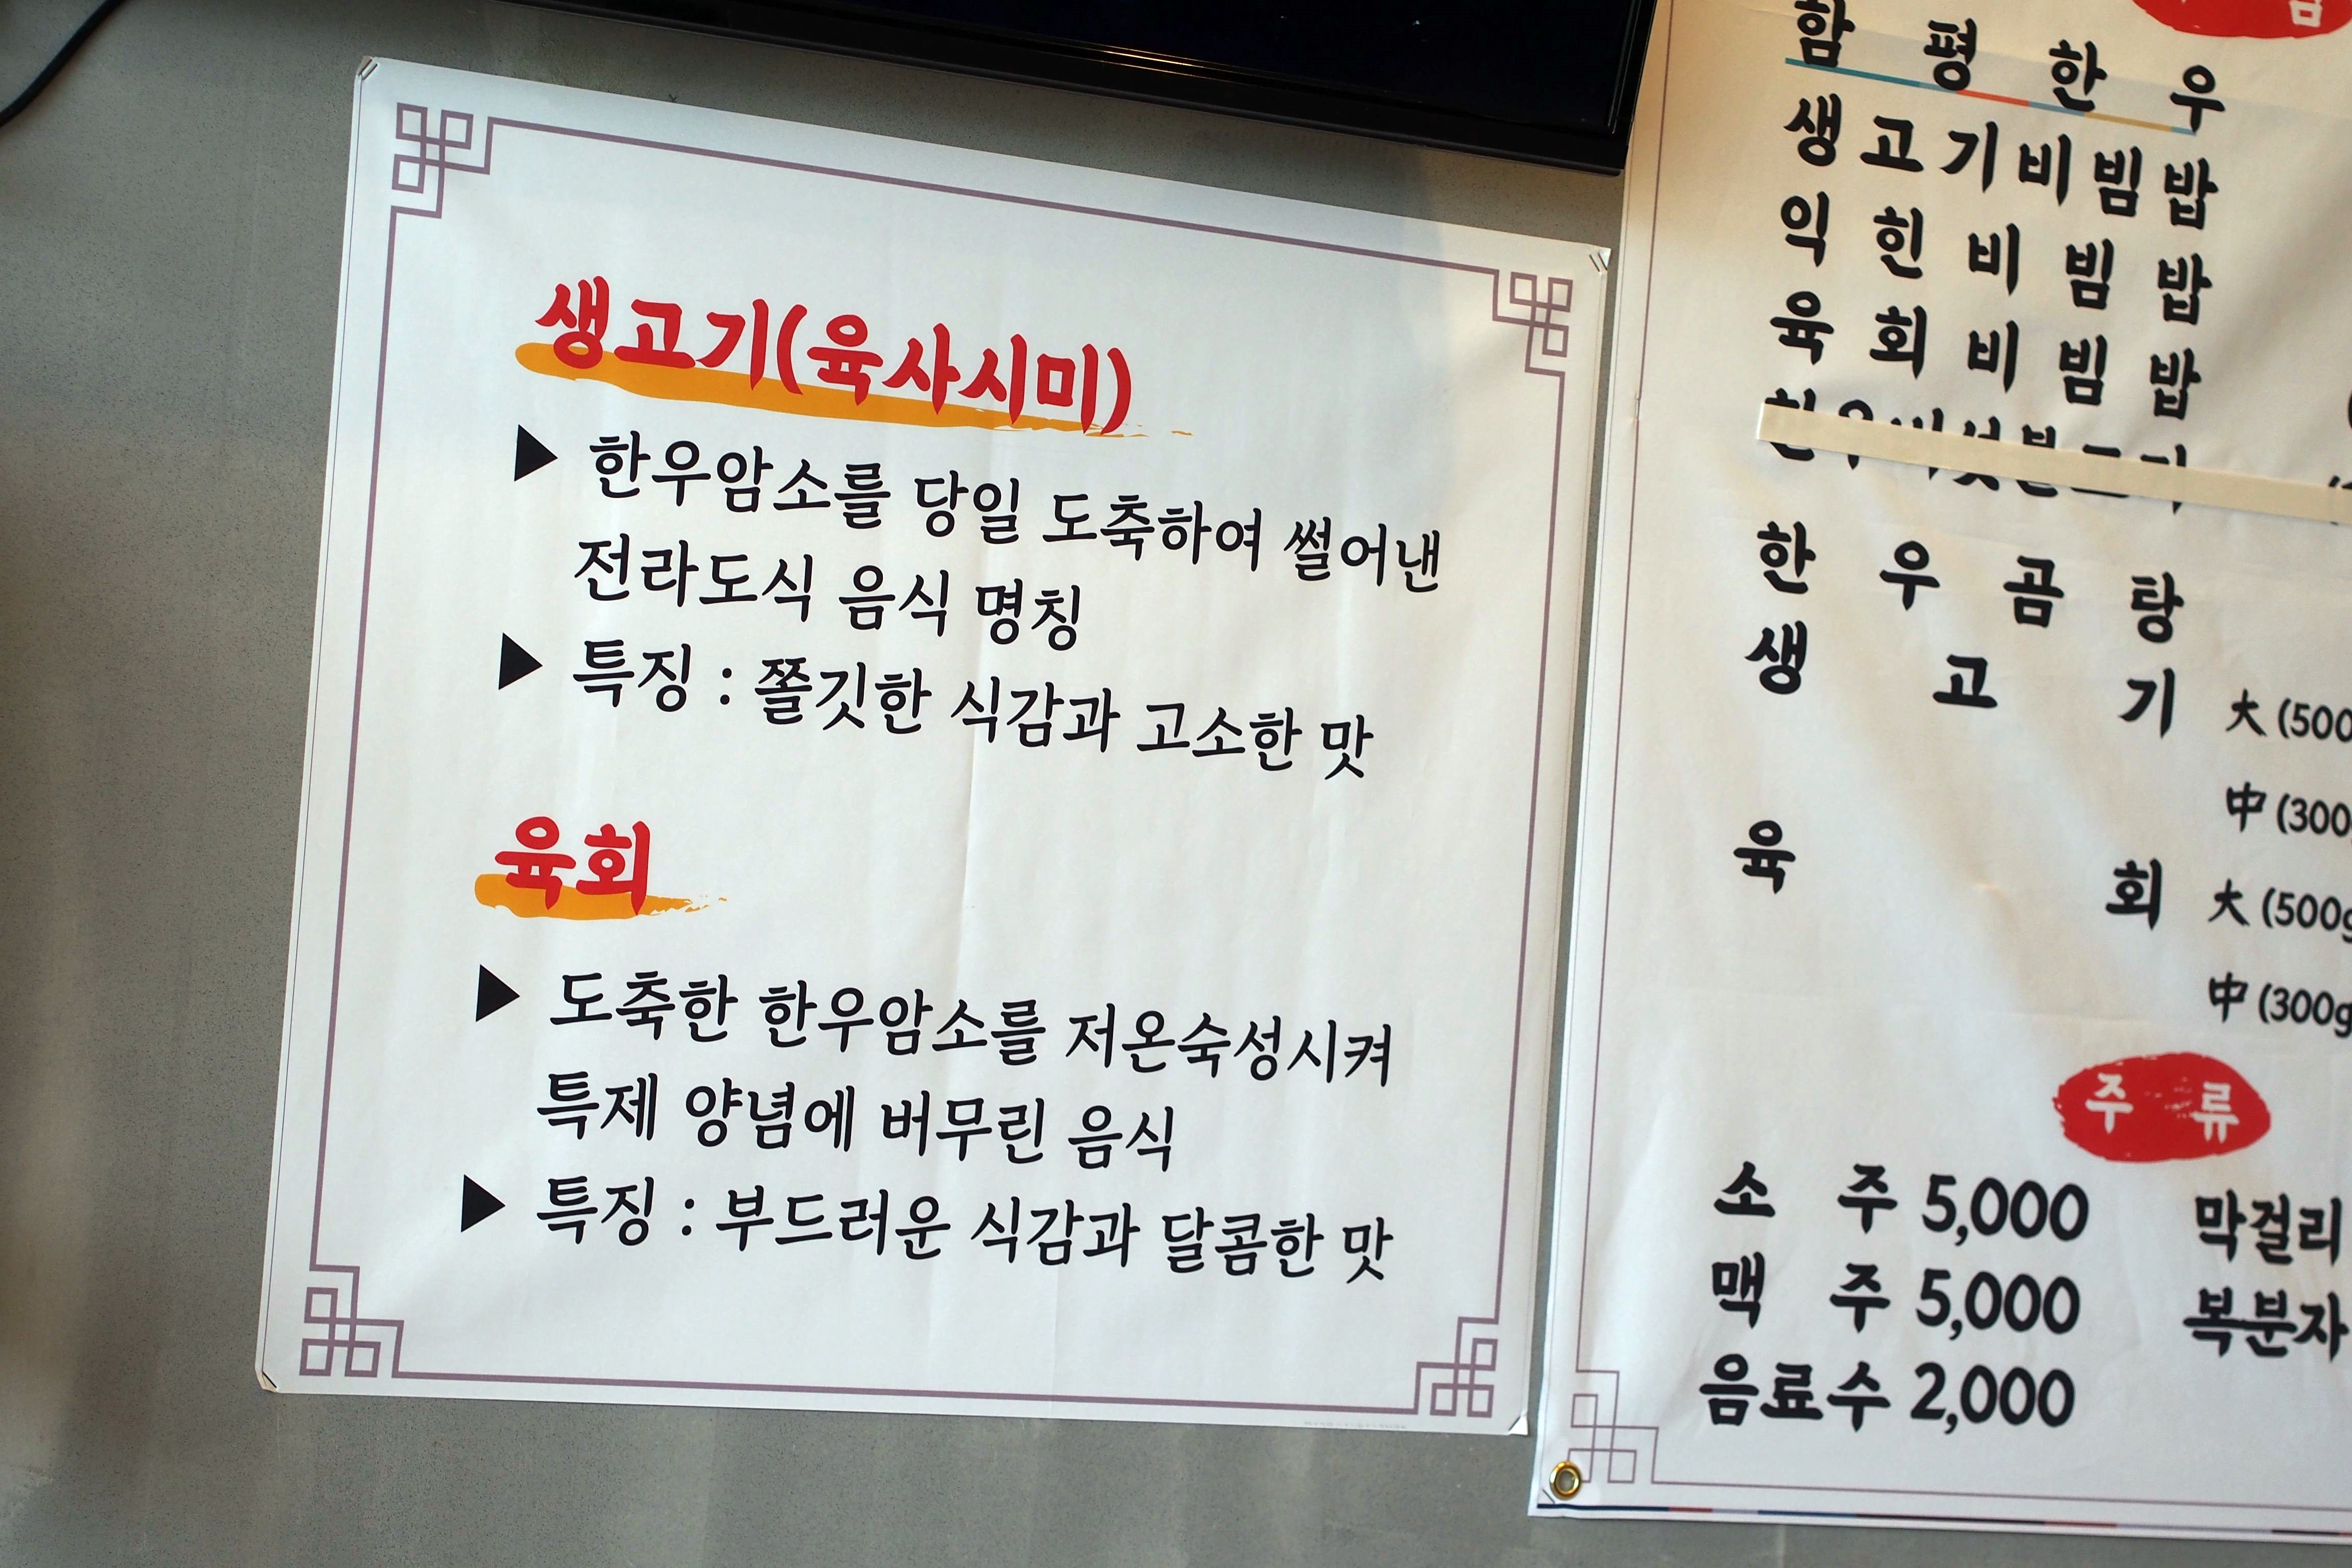 생고기(육사시미)
▶ 한우암소를 당일 도축하여 썰어낸
전라도식 음식 명칭
▶ 특징 : 쫄깃한 식감과 고소한 맛
육회
▶ 도축한 한우암소를 저온숙성시켜
특제 양념에 버무린 음식
▶ 특징 : 부드러운 식감과 달콤한 맛
함평한우
생고기비빔밥
익힌비빔밥
육회비빔밥
한우곰탕
생고기 大 (500
中 (300
육회 大 (500g
中 (300g
주류
소주 5,000 막걸리
맥주 5,000 복분자
음료수 2,000